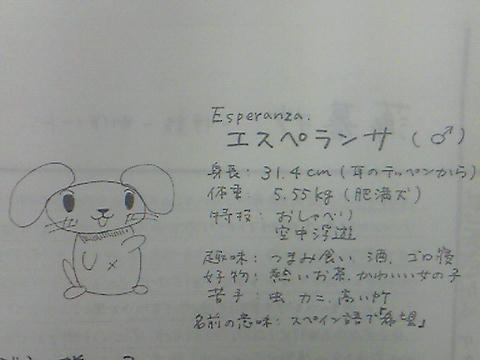 Esperanza.
エスペランサ (♂)
身長: 31.4cm (耳のテッペンから)
体重: 5.55kg (肥満犬)
特技: おしゃべり
空中浮遊
趣味: つまみ食い、酒、ゴロ寝
好物: 熱いお茶、かわいい女の子
苦手: 虫、カニ、高い所
名前の意味: スペイン語で「希望」